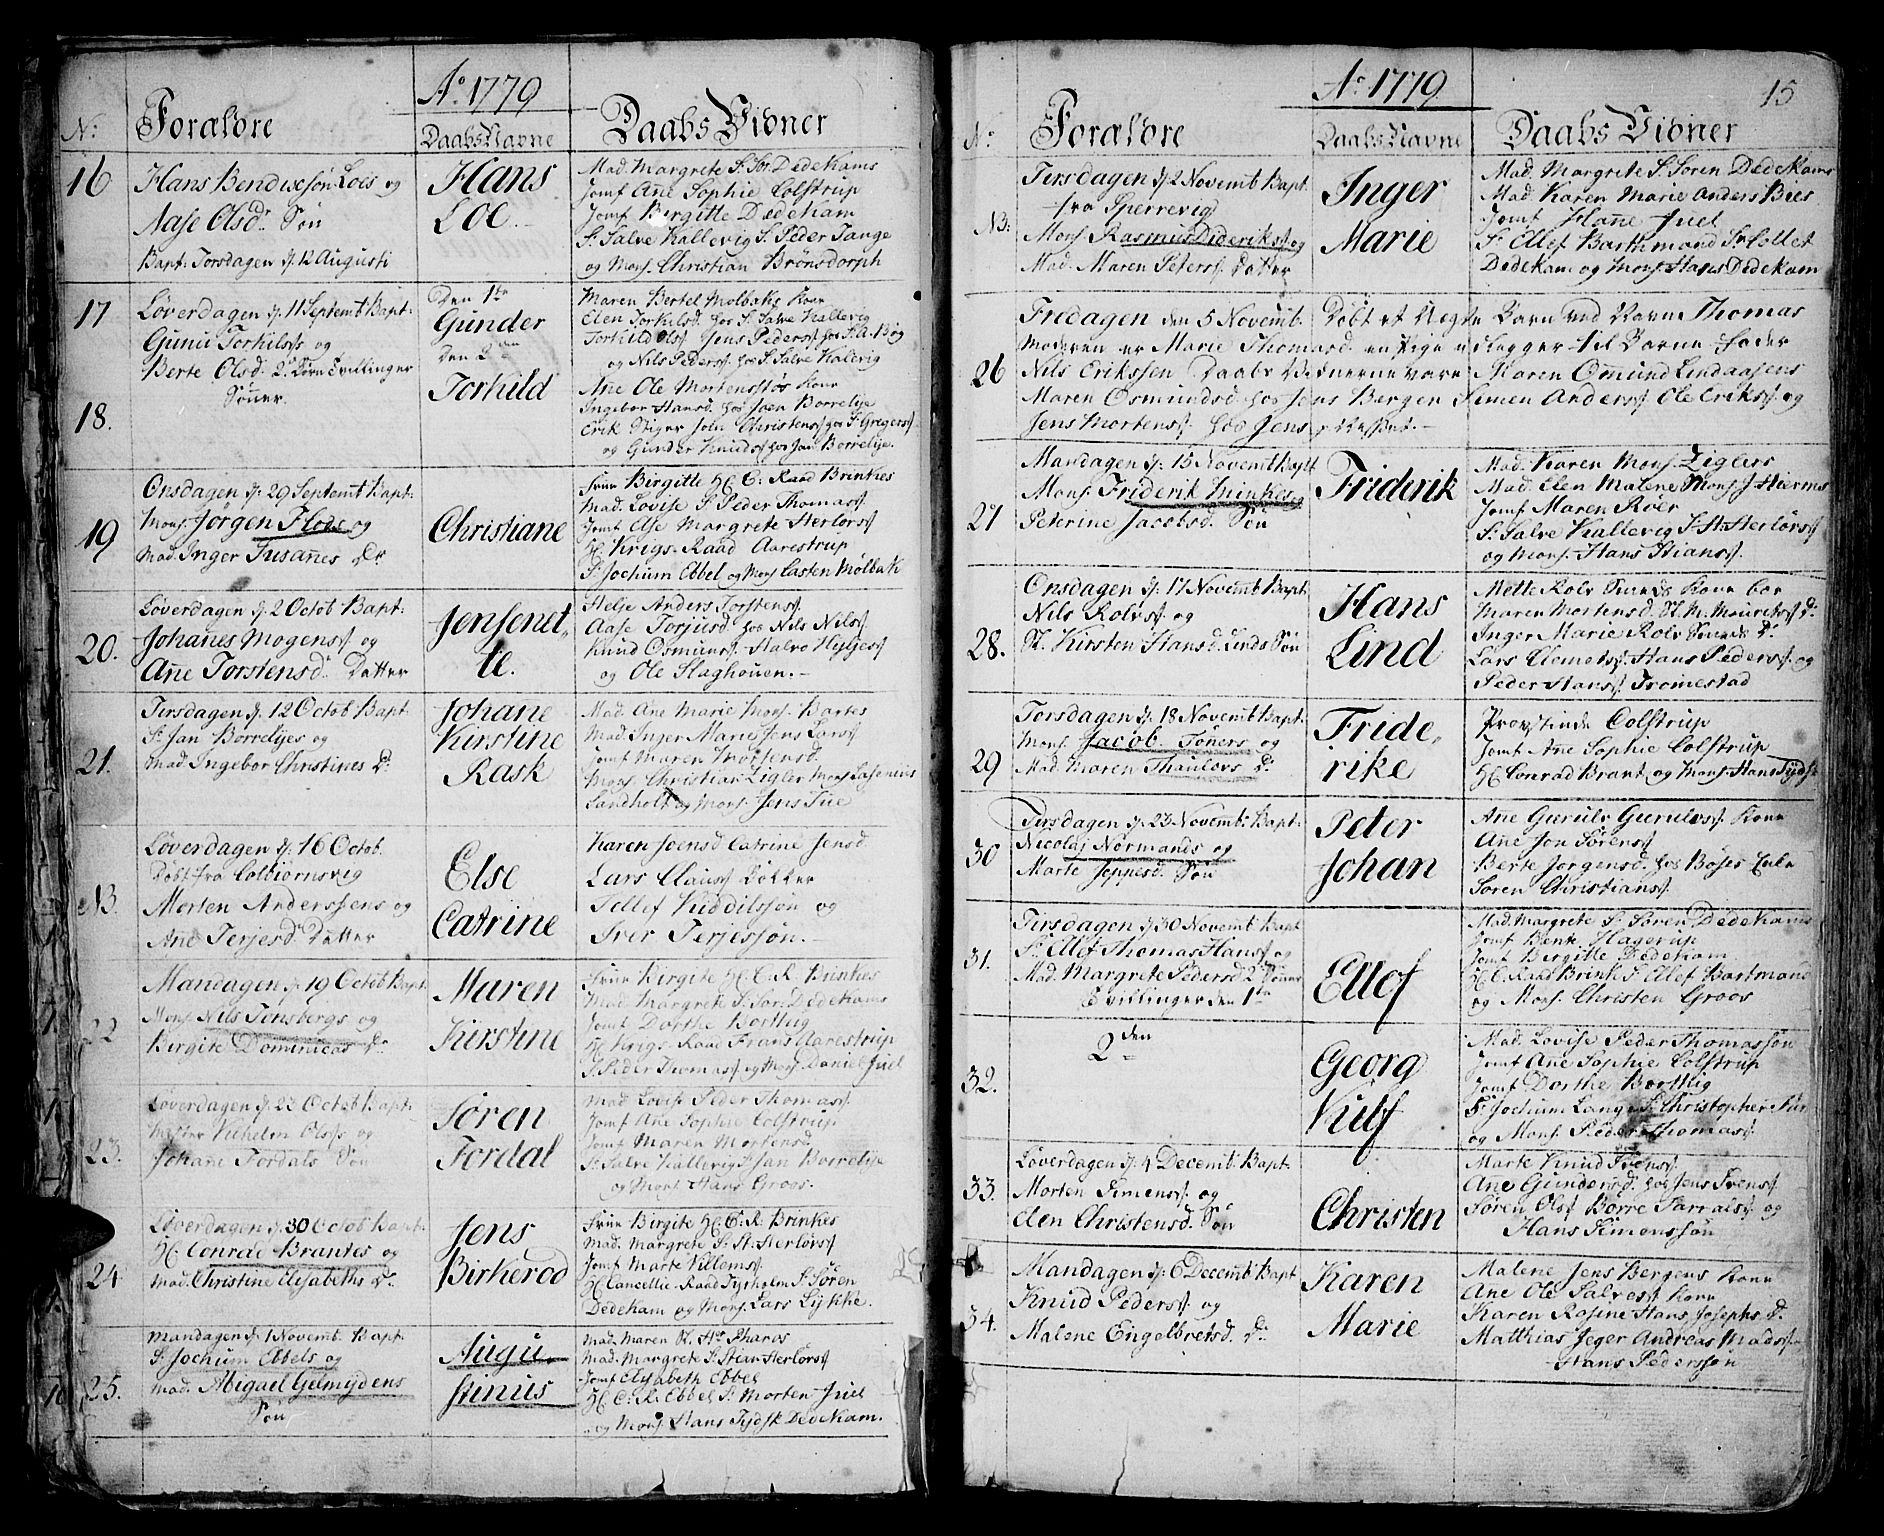 Aᵒ 1779
Nᵒ
Forældre
Daabs Navne
Daabs Vidner
16
Hans Bendixsøn Loes og
Aase Olsdr Søn
Bapt: Torsdagen d: 12 Augusti
Hans
Loe.
Mad. Margrete Sr Sør. Dedekams
Jomf Ane Sophie Colstrup
Jomf Birgitte Dedekam
Sr Salve Kallevig Sr Peder Tange
og Mons. Christian Brønsdorph
17
Løverdagen d: 11 Septembr Bapt:
Guñu Torkilss og
Berte Olsd. 2 Børn Tvillinger
Søner
18.
Den 1te
Gunder
Den 2den
Torkild
Maren Bertel Molbaks Kone
Elen Torkilsd. hos Sr Salve Kallevig
Torkild Olss Jens Peders hos S. A. Bøg
og Nils Peders hos S Salve Kalevig
Ane Ole Mortens Kone
Ingebor Hansd. hos Joen Borrelije
Erik Stiger Joen Christens hos Sr Gregers
og Gunder Knuds hos Jan Borrelije.
19
Onsdagen d: 29 Septembr Bapt:
Mons. Jørgen Flods og
Mad. Inger Susañes Dr
Christiane
Frue Birgitte Hr C. Raad Brinkes
Mad. Lovise S Peder Thomas
Jomf Else Margrete Herlofs
Hr Krigs-Raad Aarestrup
Sr Jochum Ebbel og Mons Casten Mølbak
20.
Løverdagen d: 2 Octob Bapt:
Johanes Mogens og
Ane Torstensd. Datter
Jensenet,
te.
Helje Anders Torstens
Aase Torjusd hos Nils Nils
Knud Osmuns Halvo Heljes
og Ole Slaghouen.
21.
Tirsdagen d: 12 Octob Bapt:
Sr Jan Borrelijes og
Mad Ingebor Christines Dr
Johane
Kirstine
Rask
Mad. Ane Marie Mons. Bagtes
Mad. Inger Marie Jens Lars
Jomf Maren Mortensd
Mons Christian Zigler Mons Lasenius
Landholt og Mons. Jens Tue
N3.
Løverdagen d: 16 Octob.
Døbt fra Colbiornsvig
Morten Anderssens og
Ane Terjesd. Datter
Else
Catrine
Karen Joensd Catrine Jensd.
Lars Claus Døtter
Tellef Kiddilssøn og
Iver Terjessøn.
22
Mandagen d 19 Octob Bapt
Mons Nils Tønsbergs og
Birgite Dominicas Dr
Maren
Kirstine
Frue Birgite Hr C. R. Brinkes
Mad Margrete Sr Sør. Dedekams
Jomf Dorthe Borttig
Hr Krigs-Raad Frans Aarestrup
S Peder Thomas og Mons. Daniel Juel
23.
Løverdagen d: 23 Octob Bapt:
Mester Vilhelm Olss og
Johañe Fordals Søn
Søren
Fordal
Mad Lovise Peder Thomas
Jomf Ane Sophie Colstrup
Jomf Maren Mortensd.
Sr Salve Kallevig Sr Jan Borrelije
og Mons Hans Groos.
24
Løverdagen d: 30 Octob Bapt:
Hr Conrad Brantes og
Mad. Christine Elisabeths Dr
Jens
Birkerod
Frue Birgite Hr C. R. Brinkes
Mad. Margrete Sr St. Herlofs
Jomf Marte Villems
Hr Cancellie-Raad Tyrholm Sr Søren
Dedekam og Mons Lars Lykke.
25.
Mandagen d: 1 Novemb. Bapt:
Sr Jochum Ebbels og
Mad. Abigael Gelmijdens
Søn
Augu,
stinus
Mad. Maren Sl. Hr Pharos
Mad. Margrete Sr Stian Herlofs
Jomf Elisabeth Ebbel
Hr C. R. Ebbel Sr Morten Juel
og Mons. Hans Tydsk Dedekam.
Aᵒ 1779
15
Nᵒ
Forældre
Daabs Navne
Daabs Vidner
N3:
Tirsdagen d: 2 Novemb Bapt.
fra Sperrevig
Mons Rasmus Dideriks og
Mad. Maren Peters Datter
Inger
Marie
Mad. Margrete S. Søren Dedekams
Mad. Karen Marie Anders Bies
Jomf Hañe Juel
Sr Ellef Barthmand Sr Collet
Dedekam og Mons Hans Dedekam
26
Fredagen den 5 Novemb. Døbt et Uegte Barn ved Navn Thomas
Moderen er Marie Thomasd. en Pige udlegger til Barne-Fader
Nils Erikssen Daabs Vidnerne vare Maren Omund Lindaasens
Maren Osmundsd hos Jens Bergen Simen Anders Ole Eriks og
Jens Mortens hos Jens
27
Mandagen d: 15 Novemb Bapt
Mons Friderik Hinkelig
Peterine Jacobsd. Søn
Friderik
Mad. Karen Mons Ziglers
Mad. Elen Malene Mons J Hiermes
Jomf Maren Roer
Sr Salve Kallevig Sr St. Herlofs
og Mons. Hans Stians.
28.
Onsdagen d: 17 Novemb Bapt
Nils Rolvs og
St. Kirsten Hansd. Linds Søn
Hans
Lind
Mette Rolv Kone
Maren Mortensd. Dr
Inger Marie Rolv Dr
Lars Clemets Hans Peders og
Peder Hans Tromestad
29
Torsdagen d: 18 Novemb Bapt
Mons. Jacob Toners og
Mad. Maren Thaulovs Dr
Fride,
rike
Provstinde Colstrup
Jomf Ane Sophie Colstrup
Hr Conrad Brant og Mons. Hans Tydsk
30
Tirsdagen d: 23 Novemb. Bapt:
Nicolaj Normands og
Marte Jeppesd. Søn
Peter
Johan
Ane Gurulv Gurulvs Kone
Ane Jon Sørens
Berte Jorgensd. hos Bøjes Enke
Søren Christians.
31.
Tirsdagen d 30 Novemb Bapt
Sr Ellef Thomas Hans og
Mad. Margrete Pedersd 2de Søner
Tvillinger den 1te
Ellef
Mad. Margrete S. Søren Dedekams
Jomf Bente Hagerup
Jomf Birgitte Dedekam
Hr C. Raad Brink S Ellef Bartmand
og Mons. Christen Groos
32.
2den
Georg
Kulf
Mad. Lovise Peder Thomassøn
Jomf Ane Sophie Colstrup
Jomf Dorthe Borttig
Sr Jochum Lange Sr Christopher
og Mons. Peder Thomas.
33.
Løverdagen d: 4 Decemb Bapt:
Morten Simens og
Elen Christensd. Søn
Christen
Marte Knud
Ane Gundersd. hos Jens
Søren Ols Borre Tarrals og
Hans Simonssøn
34.
Mandagen d: 6 Decemb Bapt
Knud Peders og
Malene Engelbretsd. Dr
Karen
Marie
Malene Jens Bergens Kone
Ane Ole Salves Kone
Karen Rosine Hans Josephs Dr
Matthias Jeger Andreas Mads
Hans Pederssøn